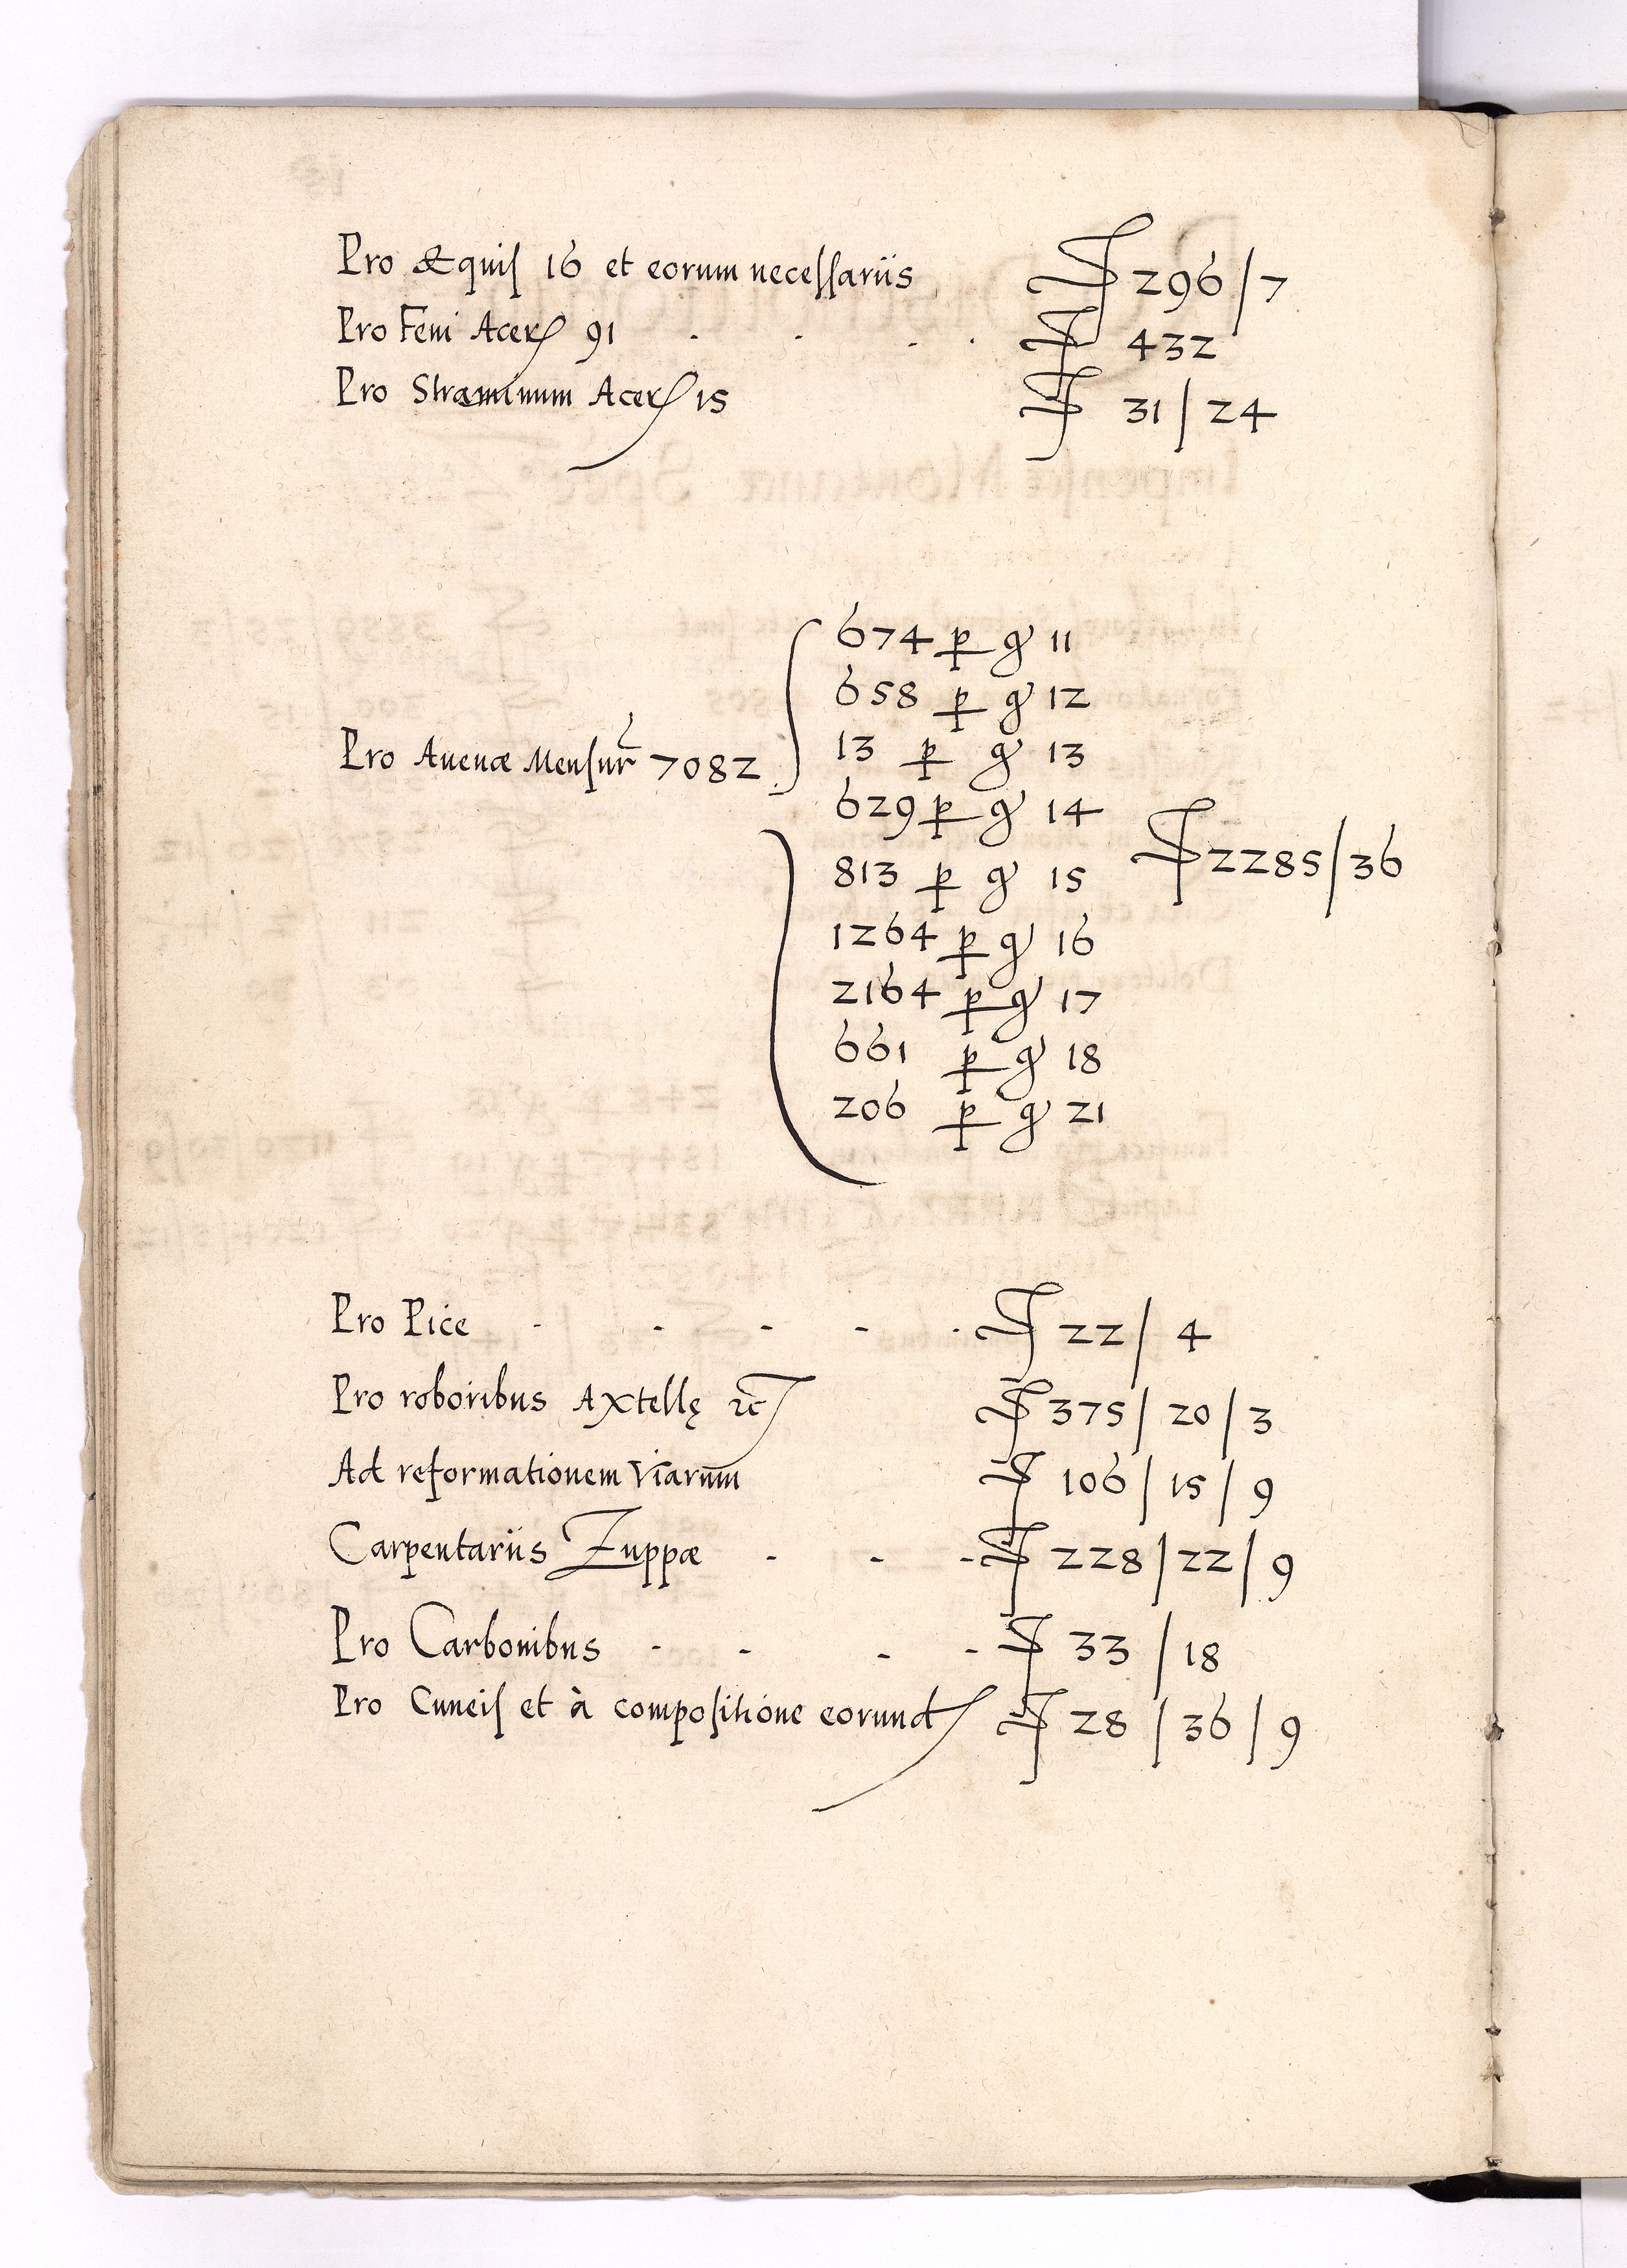 Pro Æquis 16 et eorum necessariis ƒ 296/7
Pro Feni Acer 91 - - - - ƒ 432
Pro Straminum Acer 15 ƒ 31/24
674 p g 11
658 p g 12
Pro Auenæ Mensur 7082 13 p g 13
629 p g 14
813 p g 15 ƒ 2285/36
1264 p g 16
2164 p g 17
661 p g 18
206 p g 21
Pro Pice - - - - - ƒ 22/4
Pro roboribus Axtellę etc ƒ 375/20/3
Ad reformationem Viarum ƒ 106/15/9
Carpentariis Zuppæ - - - ƒ 228/22/9
Pro Carbonibus - - - - ƒ 33/18
Pro Cuneis et à compositione eorund ƒ 28/36/9